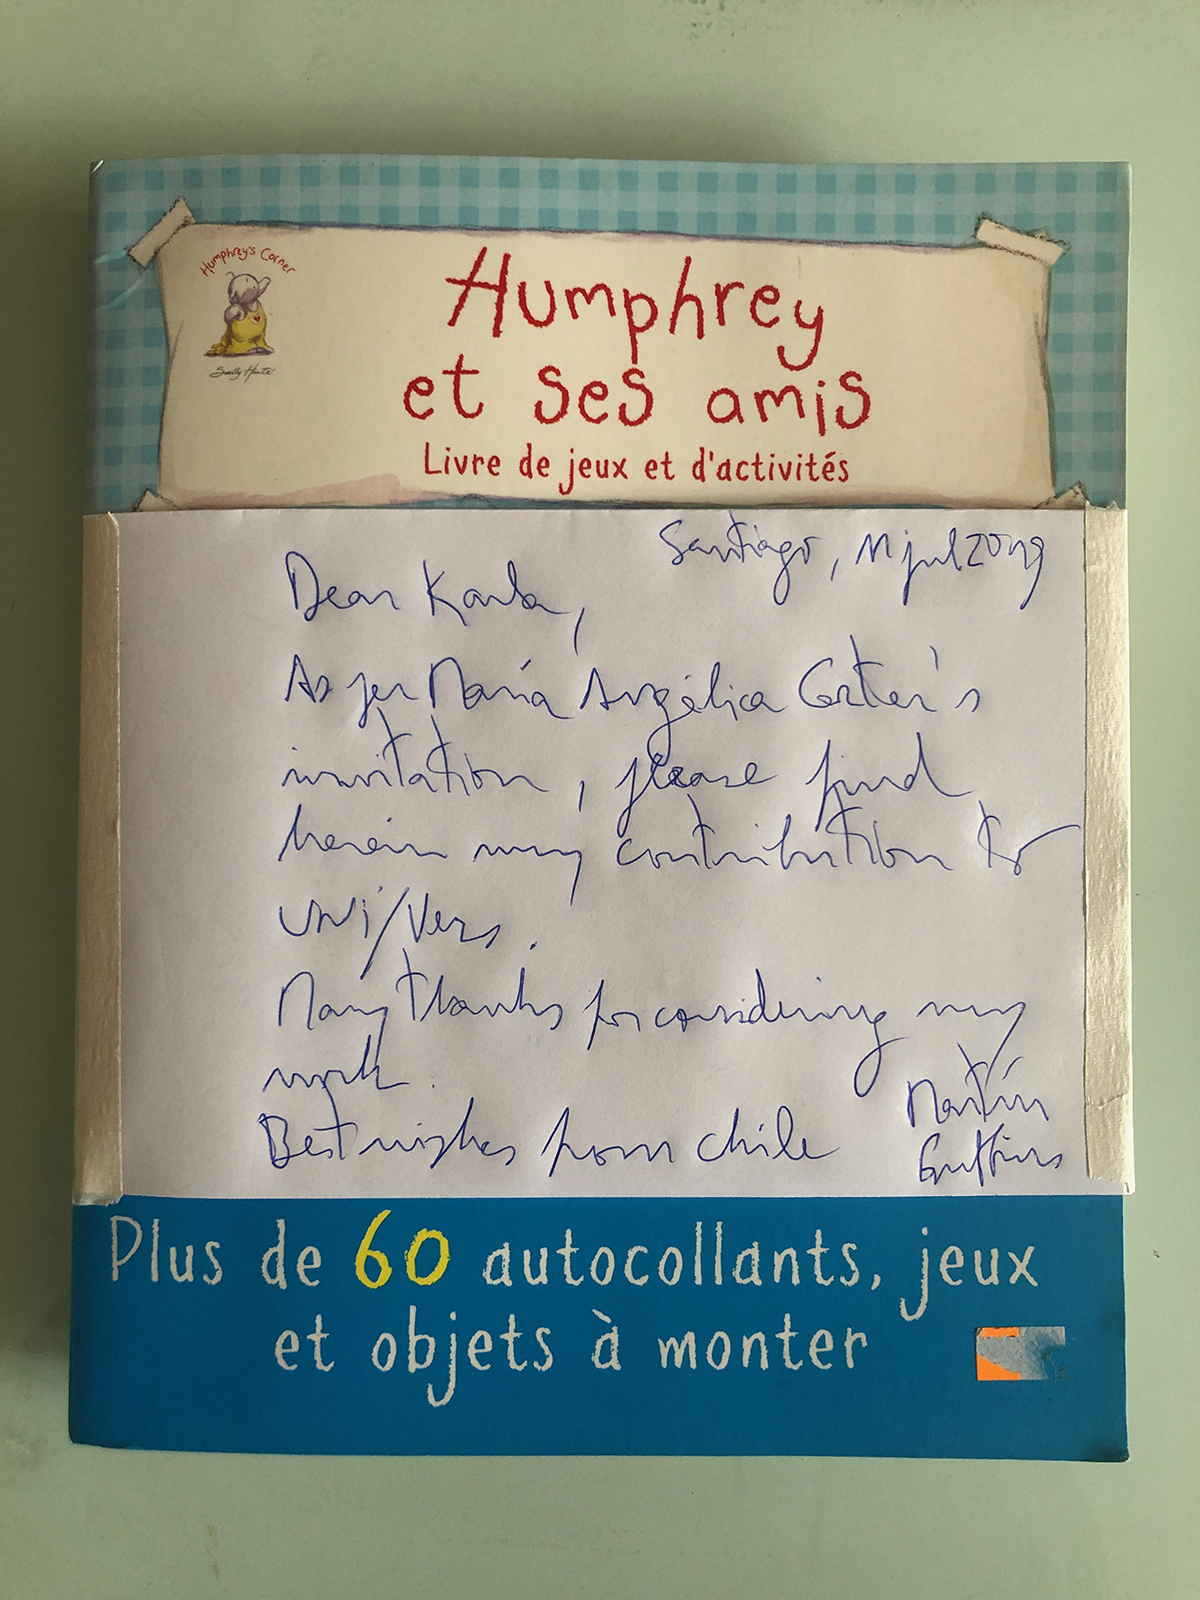 Humphrey's Corner
Sally Hunter
Humphrey
et ses amis
Livre de jeux et d'activités
Santiago, 11 jul 2019
Dear Karla,
As per María Angélica Carter's
invitation, please find
herein my contribution to
UNI/Vers.
Many thanks for considering my
work.
Best wishes from Chile
Martín
Plus de 60 autocollants, jeux
et objets à monter